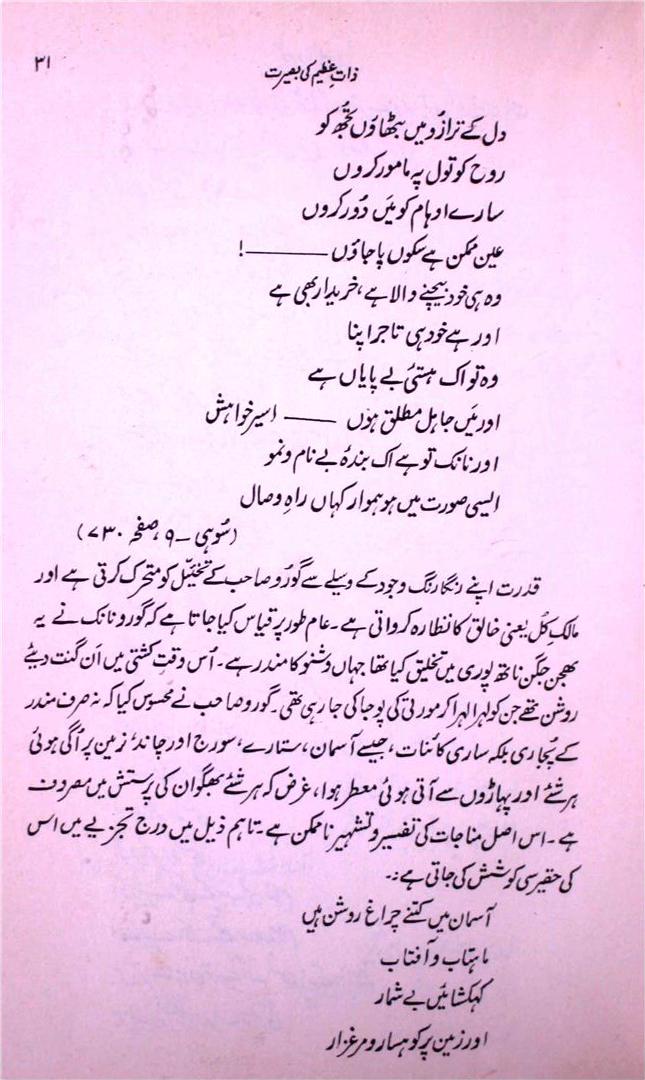 ۳۱
ذاتِ عظیم کی بصیرت
دل کے ترازو میں بٹھاؤں تجھ کو
روح کو تول پہ مامور کروں
سارے اوہام کو میَں دُور کروں
عین ممکن ہے سکوں پا جاؤں ———!
وہ ہی خود بیچنے والا ہے، خریدار بھی ہے
اور ہے خود ہی تاجر اپنا
وہ تو اک ہستئ بے پایاں ہے
اور میَں جاہل مطلق ہوں ——— اسیر خواہش
اور نانک تو ہے اک بندۂ بے نام و نمو
ایسی صورت میں ہو ہموار کہاں راہِ وصال
(سُوہی ۔ ۹، صفحہ ۷۳۰)
قدرت اپنے رنگا رنگ وجود کے وسیلے سے گورو صاحب کے تخیّل کو متحرک کرتی ہے اور
مالکِ کُل یعنی خالق کا نظارہ کرواتی ہے۔ عام طور پر قیاس کیا جاتا ہے کہ گورو نانک نے یہ
بھجن جگن ناتھ پوری میں تخلیق کیا تھا جہاں وِشنو کا مندر ہے۔ اُس وقت کشتی میں اَن گنت دیئے
روشن تھے جن کو لہرا لہرا کر مورتی کی پوجا کی جا رہی تھی۔ گورو صاحب نے محسوس کیا کہ نہ صرف مندر
کے پُجاری بلکہ ساری کائنات، جیسے آسمان، ستارے، سورج اور چاند، زمین پر اُگی ہوئی
ہر شئے اور پہاڑوں سے آتی ہوئی معطر ہوا، غرض کہ ہر شئے بھگوان کی پرستش میں مصروف
ہے۔ اس اصل مناجات کی تفسیر و تشہیر ناممکن ہے۔ تاہم ذیل میں درج تجزیے میں اس
کی حقیر سی کوشش کی جاتی ہے:۔
آسمان میں کتنے چراغ روشن ہیں
ماہتاب و آفتاب
کہکشائیں بے شمار
اور زمین پر کوہسار و مرغزار